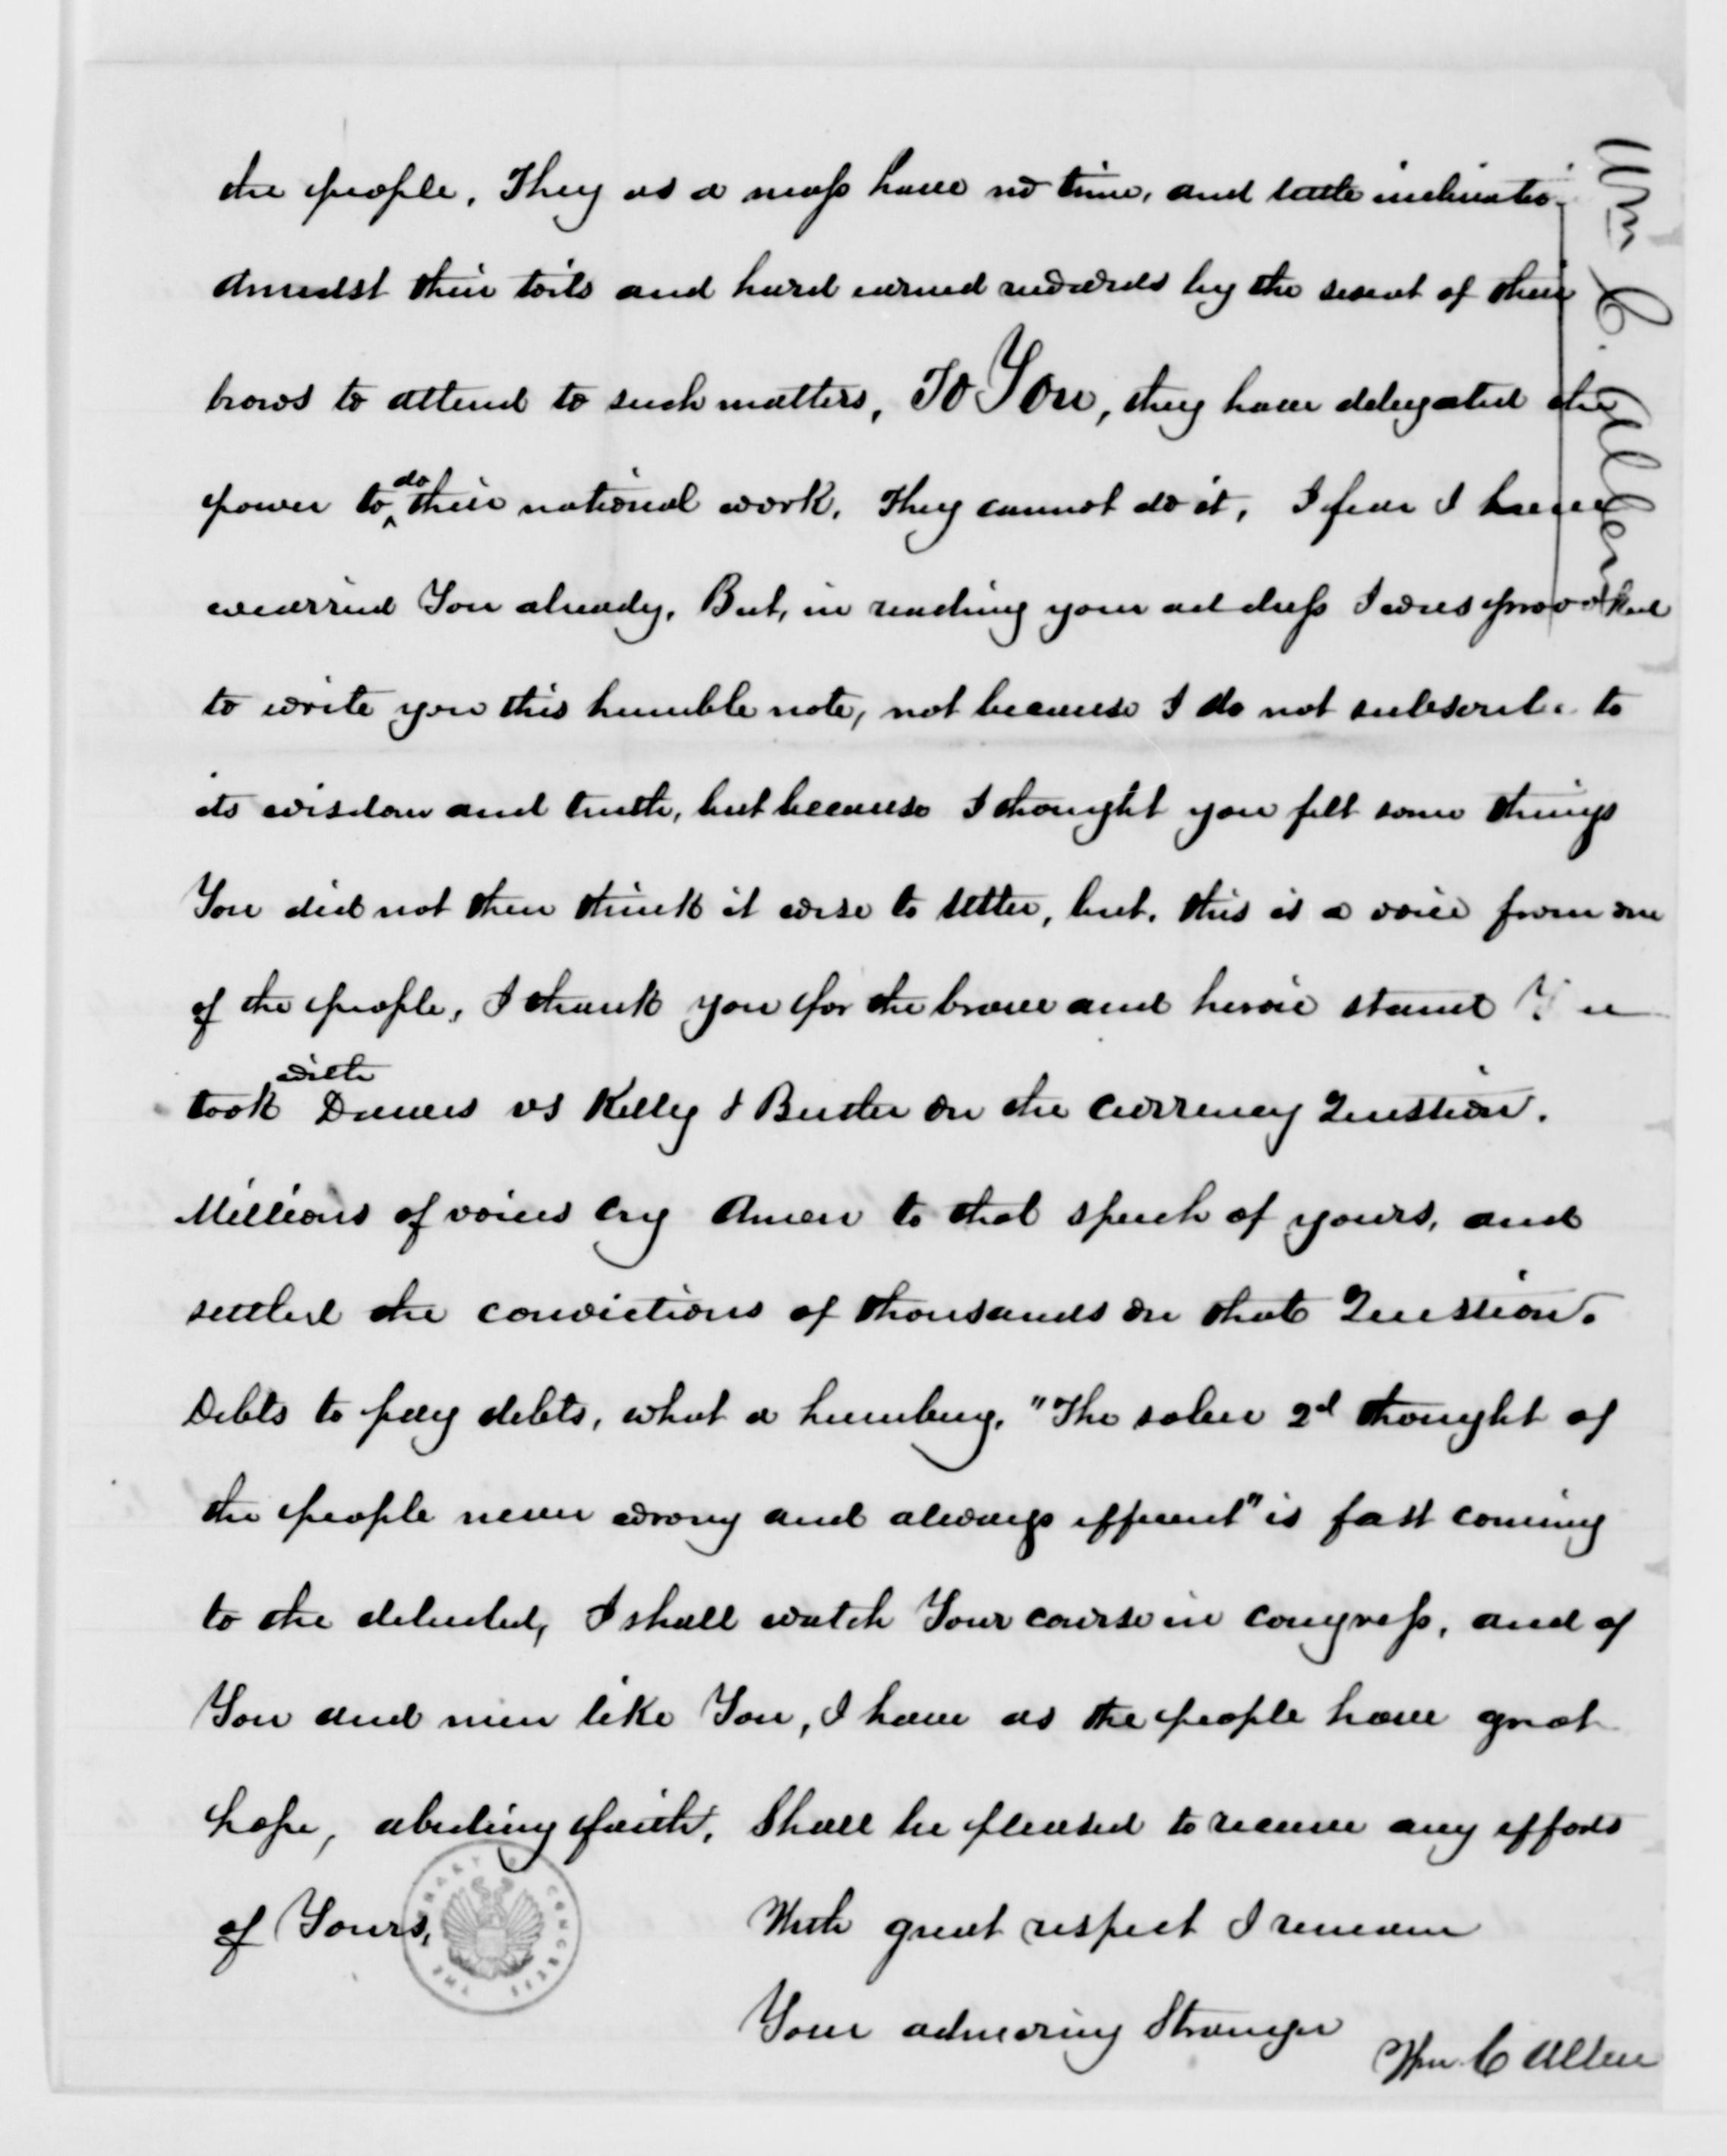 the people. They as a mass have no time, and little inclinatio-
amidst their toils and hard earned rewards by the sweat of their
brows to attend to such matters, To You, they have delegated the
power to do their national work. They cannot do it, I fear I have
wearried You already. But, in reading your address I was provoked
to write you this humble note, not because I do not subscribe to
its wisdom and truth, but because I thought you felt some things
You did not then think it wise to utter, but, this is a voice from one
of the people, I thank you for the brave and heroic stand You
took with Dawes vs Kelley & Butler on the Currency Question.
Millions of voices cry Amen to that speech of yours, and
settled the convictions of thousands on that Question.
Debts to pay debts, what a humbug. "The sober 2d thought of
the people never wrong and always efficient" is fast coming
to the deluded, I shall watch Your course in congress, and of
You and men like You, I have as the people have great
hope, abiding faith. Shall be pleased to receive any efforts
of Yours,
With great respect I remain
Your admiring Stranger
Wm C Allen
Wm C. Allen
THE LIBRARY OF CONGRESS